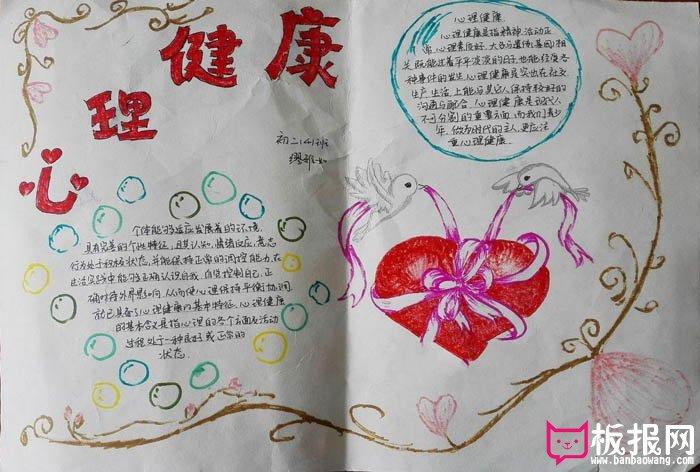 心理健康
初二(4)班
个体能够适应发展着的环境,
具有完善的个性特征,且其认知,情绪反应,意志
行为处于积极状态,并能保持正常的调控能力,在
生活实践中能够正确认识自我,自觉控制自己,正
确对待外界影响,从而使心理保持平衡协调,
就已具备了心理健康的基本特征.心理健康
的基本含义是指心理的各个方面及活动
过程处于一种良好或正常的
状态.
心理健康
心理健康是指精神活动正
常,心理素质好.
既能过着平平淡淡的日子,也能经受各
种事件的发生.心理健康突出在社交
生产生活上能与其它人保持较好的
沟通与配合.心理健康是现代人
不可分割的重要方面,而我们青少
年,做为时代的主人,更应注
重心理健康
板报网
www.banbaowang.com